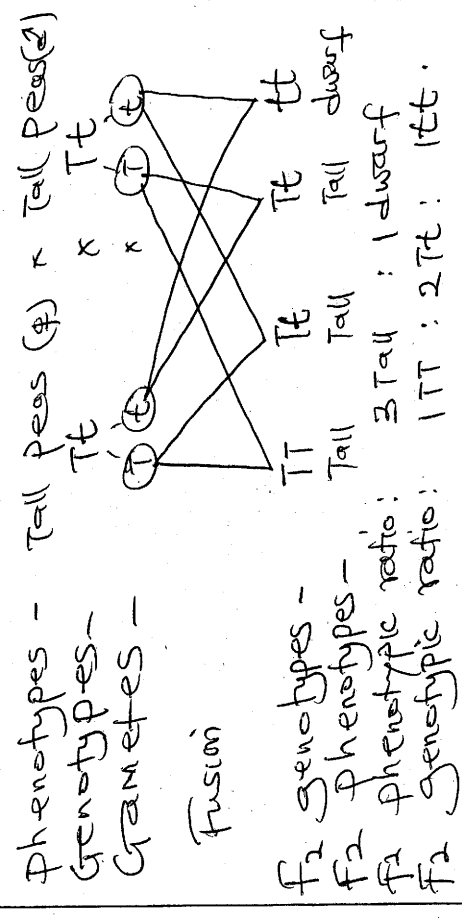 Phenotypes - Tall Peas (♀) x Tall Peas (♂)
Genotypes - Tt x Tt
Gametes - T t x T t
Fusion
F2 genotypes - TT Tt Tt tt
F2 Phenotypes - Tall Tall Tall dwarf
F2 Phenotypic ratio: 3 Tall : 1 dwarf
F2 genotypic ratio: 1TT : 2Tt : 1tt.